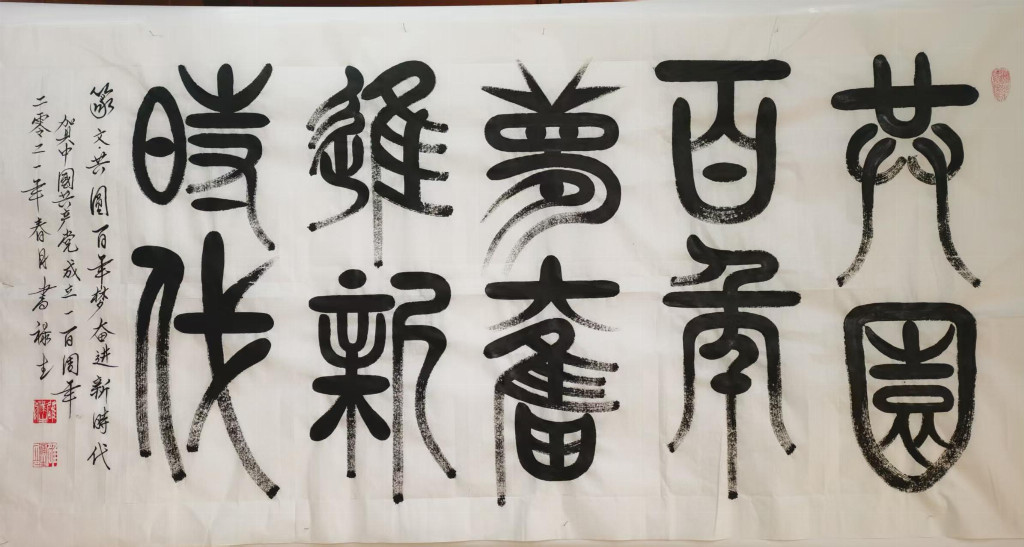 共園
百年
夢奮
進新
時代
篆文共圓百年梦奋进新時代
贺中國共产党成立一百周年
二零二一年春月書禄